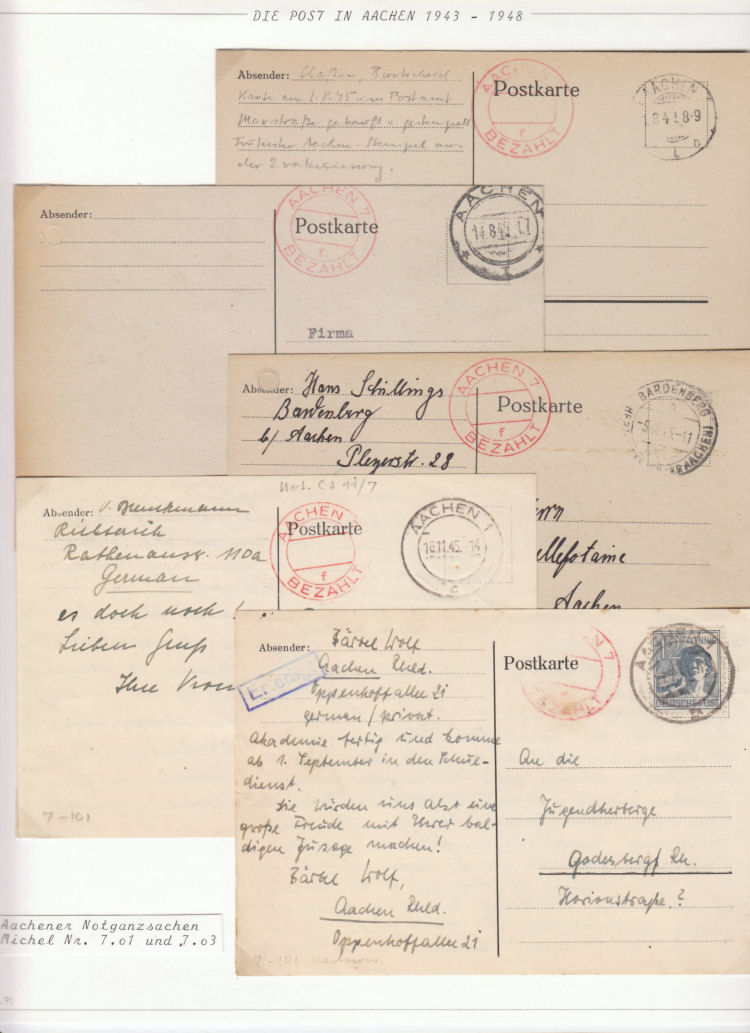 DIE POST IN AACHEN 1943 - 1948
Absender:
Postkarte
Karte am 1.8.45 im Postamt
Maxstraße gekauft u. gestempelt
Frühester Aachen-Stempel aus
der
AACHEN
BEZAHLT
f
AACHEN
8-9
Absender:
Postkarte
AACHEN 7
BEZAHLT
f
AACHEN
14.8.
Firma
Absender: Hans Schillings
Bardenberg
b/ Aachen
Pleyerstr. 28
Postkarte
AACHEN 7
BEZAHLT
f
BARDENBERG
AACHEN)
Aachen
Absender:
Rathenauss. 110a
German
es doch noch!
Lieben Gruß
Ihre
Postkarte
AACHEN
BEZAHLT
f
AACHEN 1
16.11.45. 14
c
7-101
Absender: Bärbel Wolf
Aachen Rhld.
Oppenhoffallee 21
german / privat.
Akademie fertig und komme
ab 1. September in den Schul-
dienst.
Sie würden uns also eine
große Freude mit Ihrer bal-
digen Zusage machen!
Bärbel Wolf,
Aachen Rhld.
Oppenhoffallee 21
7-101
Postkarte
7
BEZAHLT
PFENNIG
DEUTSCHE POST
An die
Jugendherberge
Godesberg/ Rh.
Horionstraße?
Aachener Notganzsachen
Michel Nr. 7.01 und 7.03